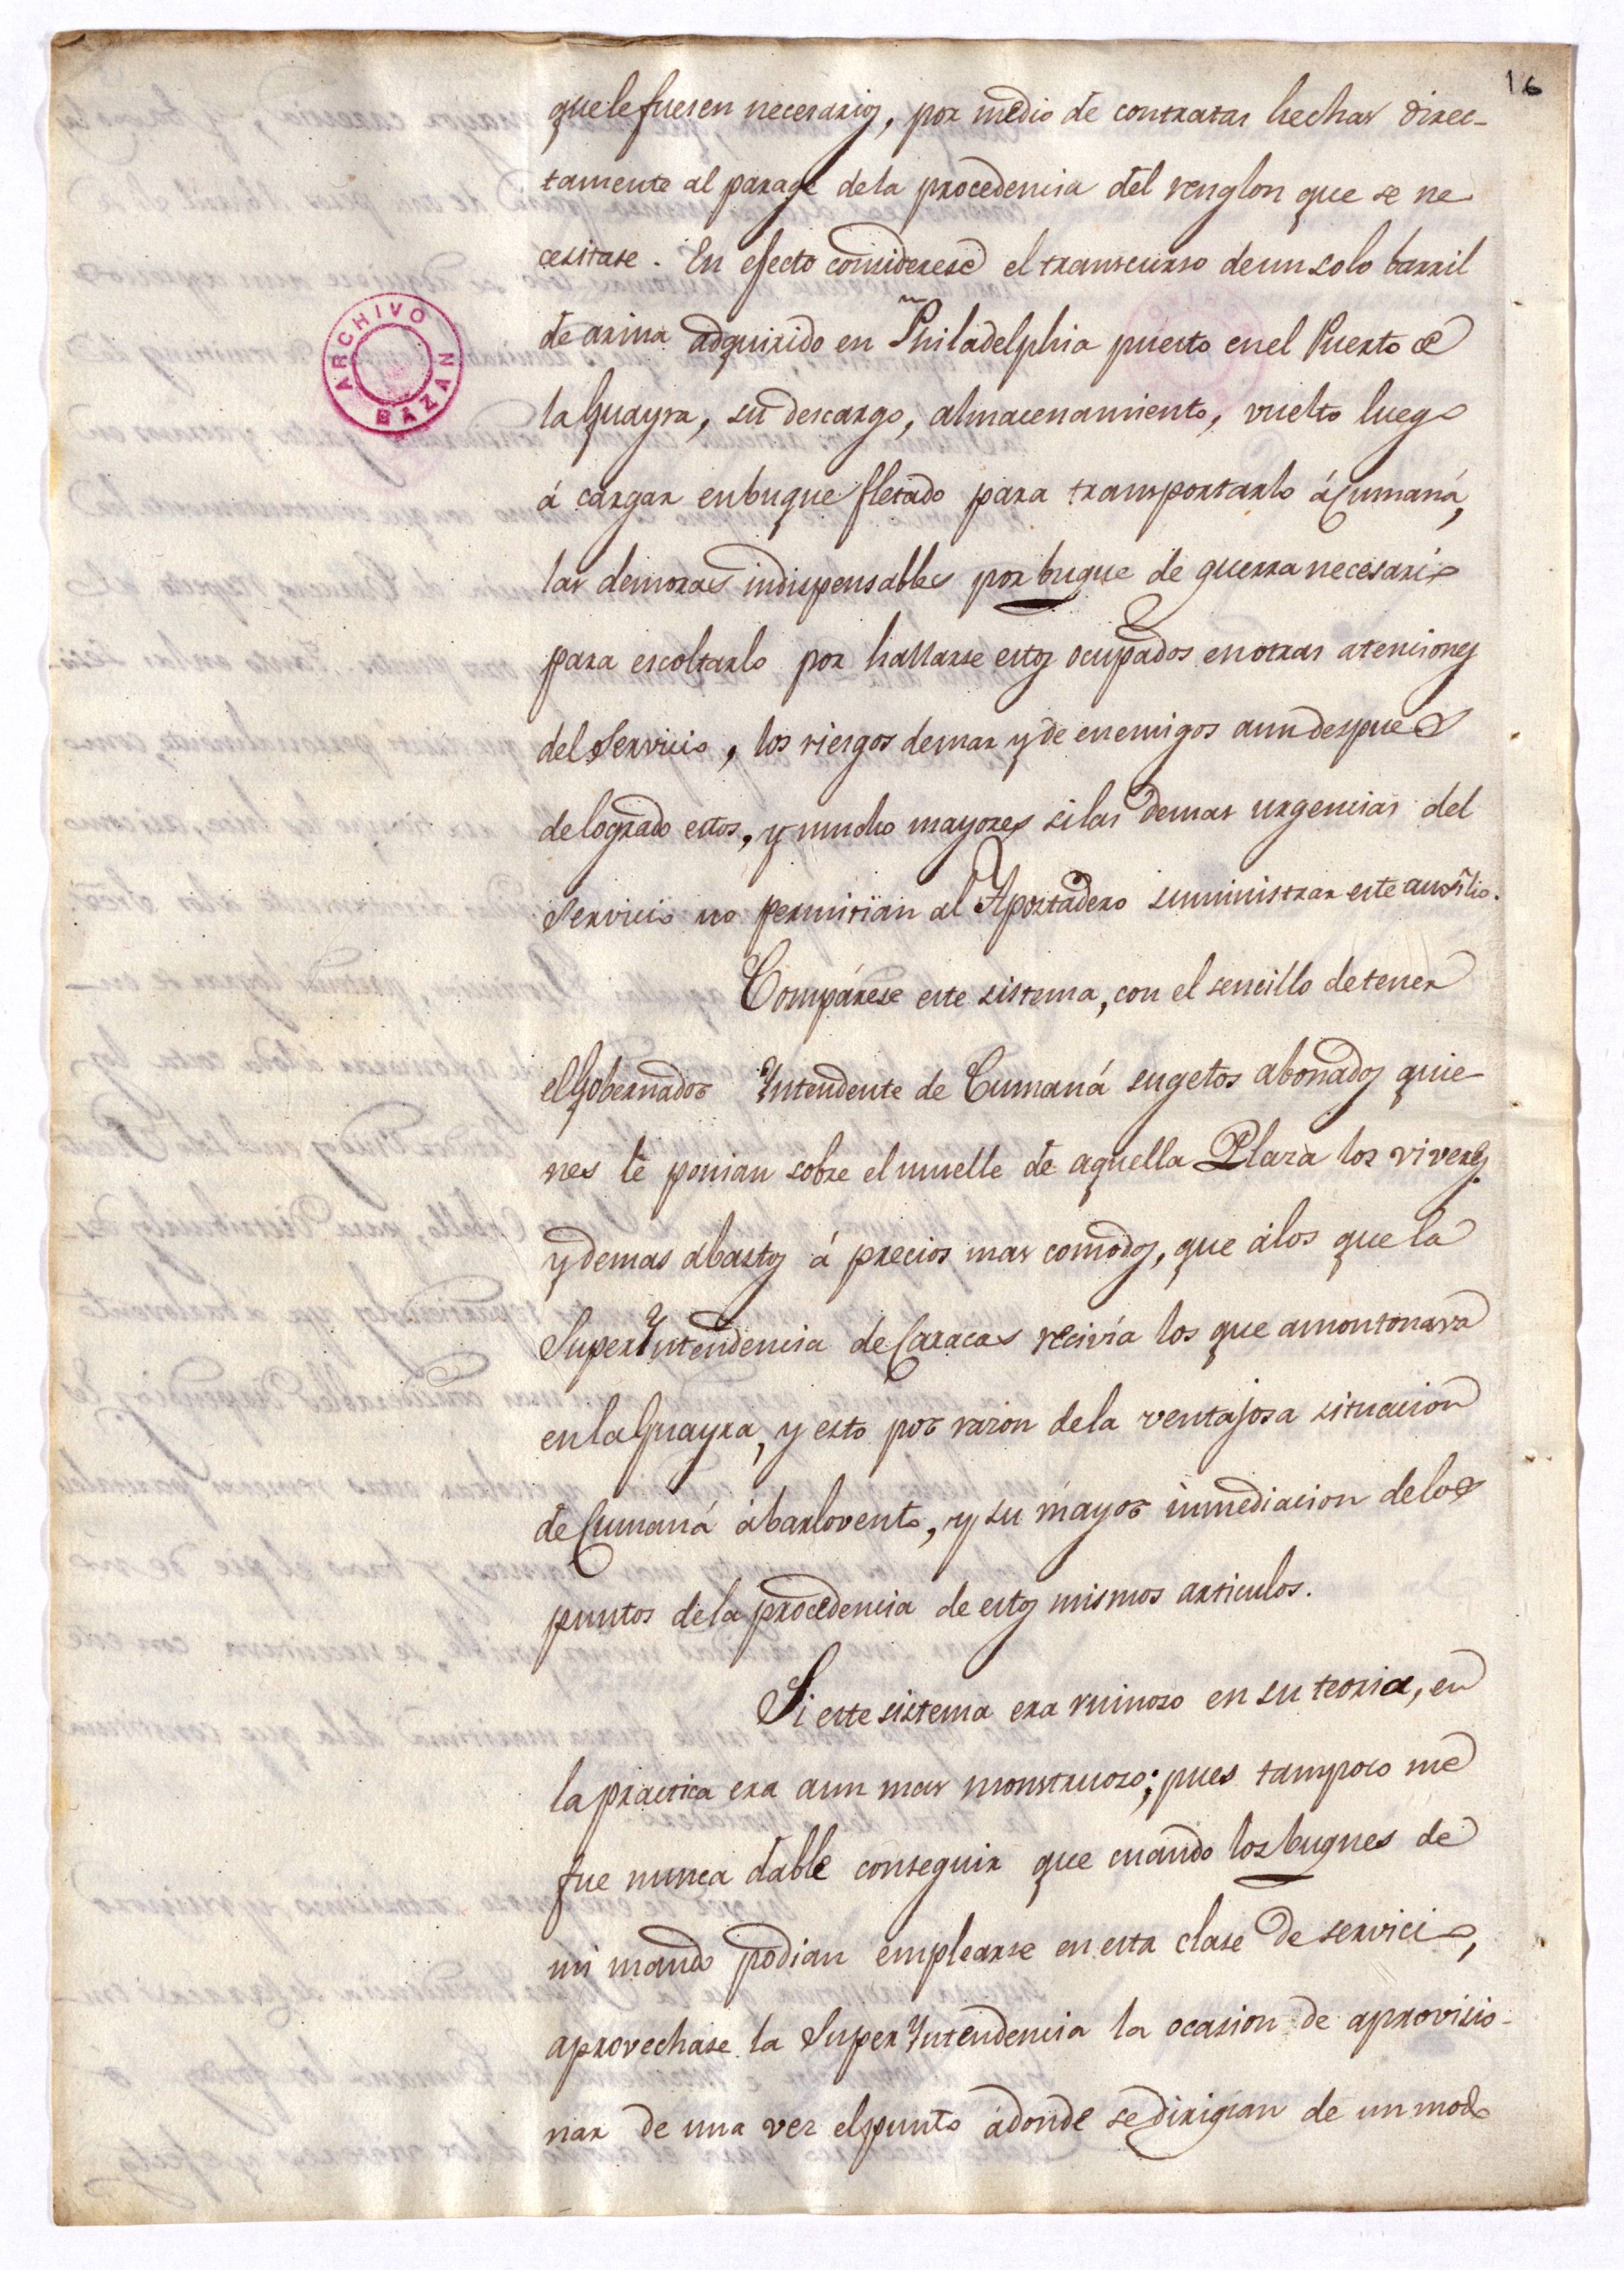 16
que le fuesen necesarios, por medio de contratas hechas direc-
tamente al parage de la procedencia del renglon que se ne
cesitase. En efecto considerese el transcurso de un solo barril
de arina adquirido en Philadelphia puesto en el Puerto de
la Guayra, su descargo, almacenamiento, vuelto luego
á cargar en buque fletado para transportarlo á Cumaná,
las demoras indispensables por buque de guerra necesario
para escoltarlo por hallarse estos ocupados en otras atenciones
del Servicio, los riesgos de mar y de enemigos aun despues
de logrado estos, y mucho mayores si las demas urgencias del
Servicio no permitian al Apostadero suministrar este ausilio.
Compárese este sistema, con el sencillo de tener
el Gobernador Yntendente de Cumaná sugetos abonados quie-
nes le ponian sobre el muelle de aquella Plaza los viveres
y demas abastos á precios mas comodos, que á los que la
SuperYntendencia de Caracas recivía los que amontonava
en la Guayra, y esto por razon de la ventajosa situacion
de Cumaná á barlovento, y su mayor inmediacion de los
puntos de la procedencia de estos mismos articulos.
Si este sistema era ruinoso en su teoria, en
la practica era aun mas monstruoso; pues tampoco me
fue nunca dable conseguir que cuando los buques de
mi mando podian emplearse en esta clase de servicio,
aprovechase la SuperYntendencia la ocasion de aprovisio-
nar de una vez el punto á donde se dirigian de un modo
ARCHIVO BAZAN